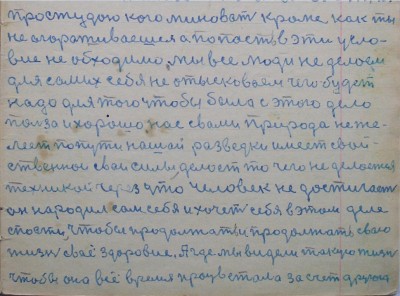 простудою кого миновать кроме, как ты
не огораживаешся а попасть в эти усло-
вие не обходимо, мы все люди не делаем
для самих себя не отыскиваем чего будет
надо для того чтобы было с этого дело
польза и хорошо, нас с вами природа не же-
леет по пути нашей разведки имеет свой-
ственной свои силы, делает то чего не делается
техникой через что человек не достигает
он народил сам себя и хочет себя в этом деле
спасти, чтобы продолжать и продолжать свою
жизнь своё здоровие. А где мы видели такую жизнь
чтобы она всё время процветала за счет другога